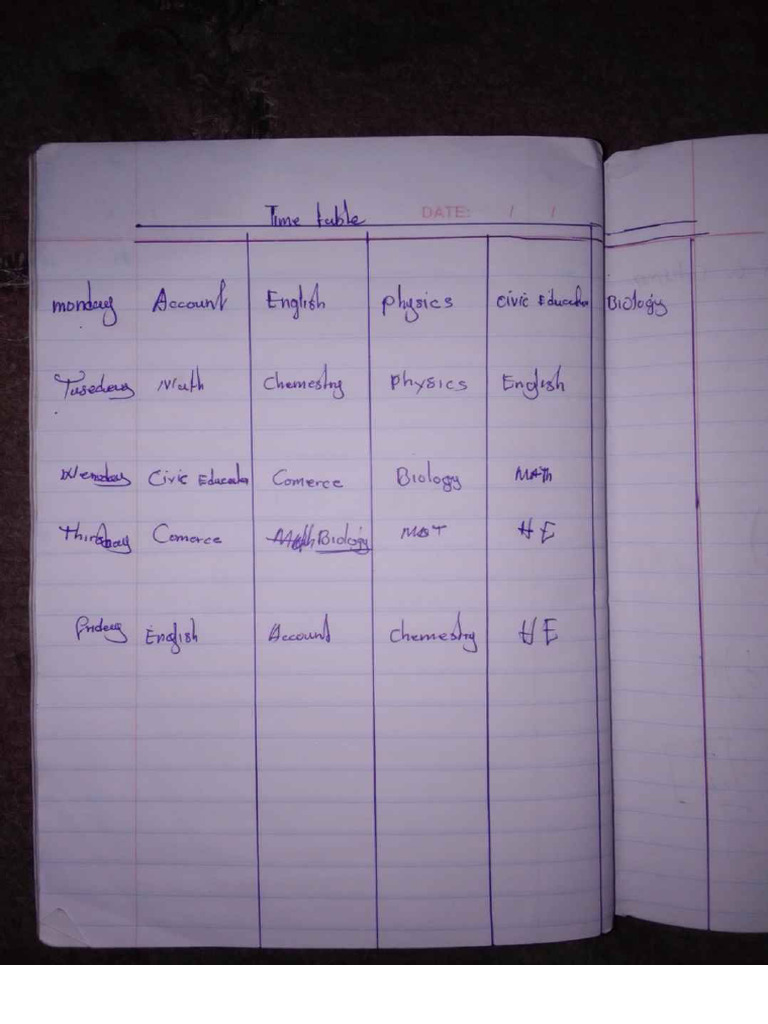 Time table DATE: / /
monday Account English physics Civic Education Biology
Tuseday Math Chemestry Physics English
Wensday Civic Education Comerce Biology Math
Thirsday Comerce Math Biology MAT HE
friday English Account Chemestry HE